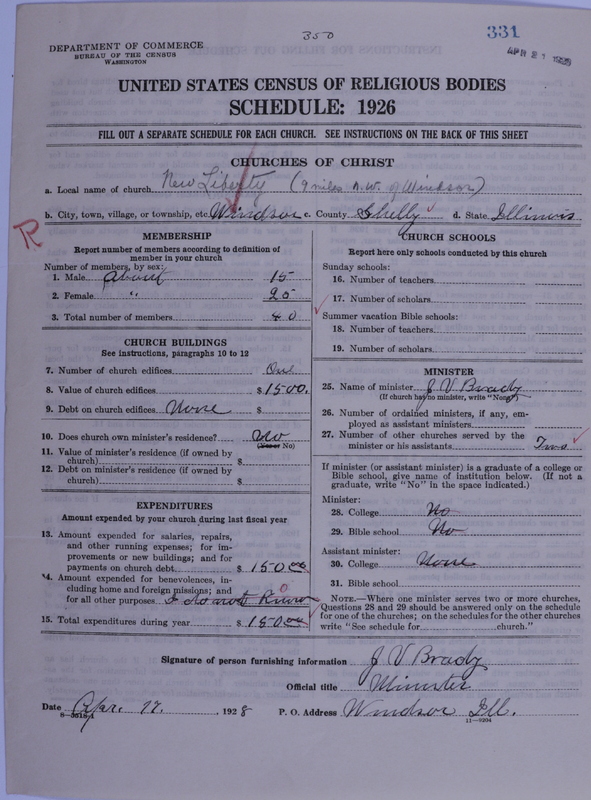 350
331
APR 21
DEPARTMENT OF COMMERCE
BUREAU OF THE CENSUS
WASHINGTON
UNITED STATES CENSUS OF RELIGIOUS BODIES
SCHEDULE: 1926
FILL OUT A SEPARATE SCHEDULE FOR EACH CHURCH. SEE INSTRUCTIONS ON THE BACK OF THIS SHEET
CHURCHES OF CHRIST
a. Local name of church New Liberty (9 miles N.W. of Windsor)
b. City, town, village, or township, etc. Windsor c. County Shelby d. State Illinois
R
MEMBERSHIP
Report number of members according to definition of
member in your church
Number of members, by sex:
1. Male About 15
2. Female " 25
3. Total number of members 40
CHURCH BUILDINGS
See instructions, paragraphs 10 to 12
7. Number of church edifices One
8. Value of church edifices $ 1500.
9. Debt on church edifices None $
10. Does church own minister's residence? No
(Yes or No)
11. Value of minister's residence (if owned by
church) $
12. Debt on minister's residence (if owned by
church) $
EXPENDITURES
Amount expended by your church during last fiscal year
13. Amount expended for salaries, repairs,
and other running expenses; for im-
provements or new buildings; and for
payments on church debt $ 150.00
14. Amount expended for benevolences, in-
cluding home and foreign missions; and
for all other purposes I do not Know 0
15. Total expenditures during year $ 150.00
CHURCH SCHOOLS
Report here only schools conducted by this church
Sunday schools:
16. Number of teachers
17. Number of scholars
Summer vacation Bible schools:
18. Number of teachers
19. Number of scholars
MINISTER
25. Name of minister J V Brady
(If church has no minister, write "None")
26. Number of ordained ministers, if any, em-
ployed as assistant ministers
27. Number of other churches served by the
minister or his assistants Two
If minister (or assistant minister) is a graduate of a college or
Bible school, give name of institution below. (If not a
graduate, write "No" in the space indicated.)
Minister:
28. College No
29. Bible school No
Assistant minister:
30. College None
31. Bible school
NOTE.—Where one minister serves two or more churches,
Questions 28 and 29 should be answered only on the schedule
for one of the churches; on the schedules for the other churches
write "See schedule for church."
Signature of person furnishing information J V Brady
Official title Minister
Date Apr. 17. , 1928 P. O. Address Windsor Ill.
11-9204